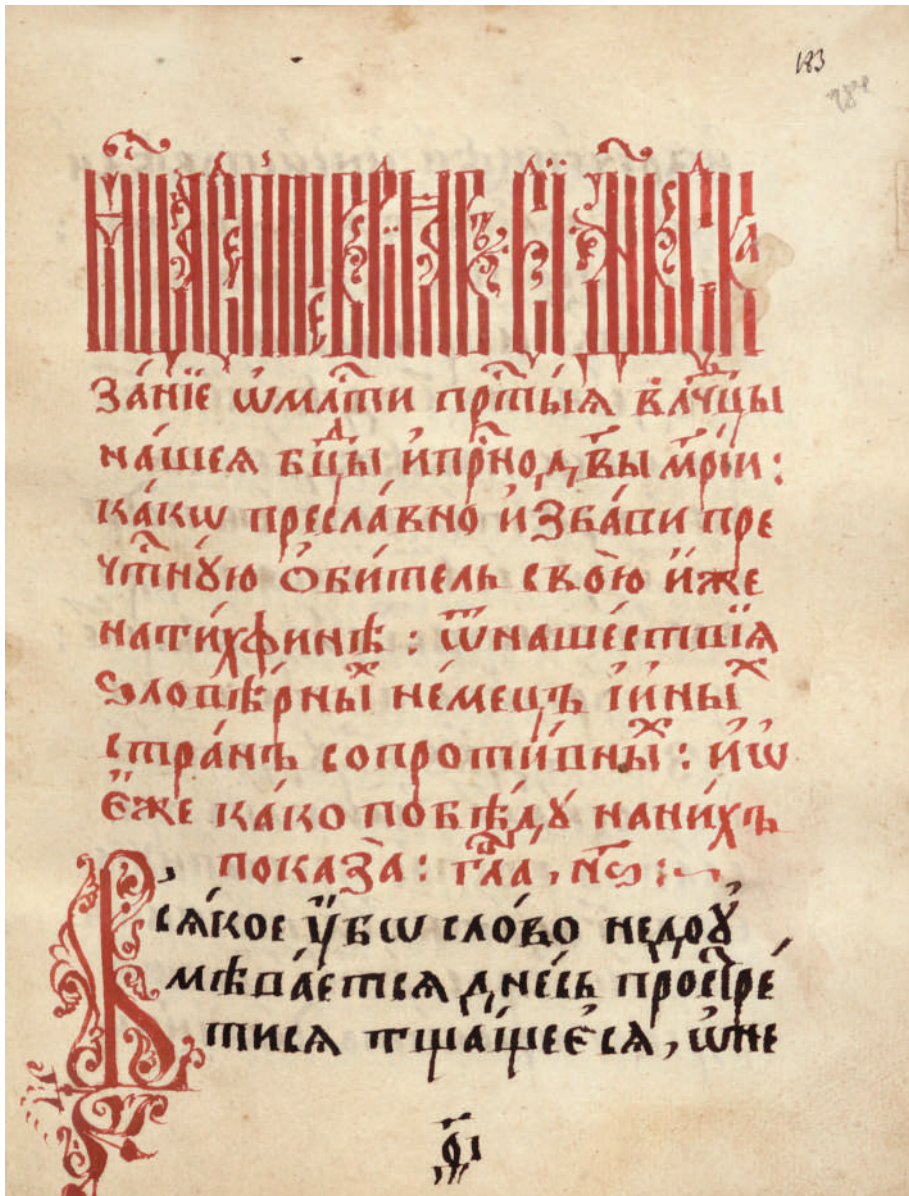 за́нїе ѡ҆ млⷭ҇ти прⷭ҇ты́ѧ влⷣчцы
на́шеѧ бцⷣы и҆ прⷭ҇нодв҃ы мр҃іи :
ка́кѡ пресла́вно и҆зба́ви пре
чⷭ҇тнꙋ́ю ѻ҆би́тель свою̀ и҆́же
на ти́хфинѣ : ѿ наше́ствїѧ
ѕловѣ́рныⷯ не́мецъ и҆ и҆ны́ⷯ
стра́нъ сопроти́вныⷯ : и҆ ѡ҆
е҆́же ка́ко побѣ́дꙋ на ни́хъ
показа̀ : гла҃ , н҃ѕ :
Всѧ́кое ᲂу҆́бѡ сло́во недоꙋ
мѣва́етсѧ дне́сь простре́
тисѧ тща́щеесѧ , ѡ҆ не